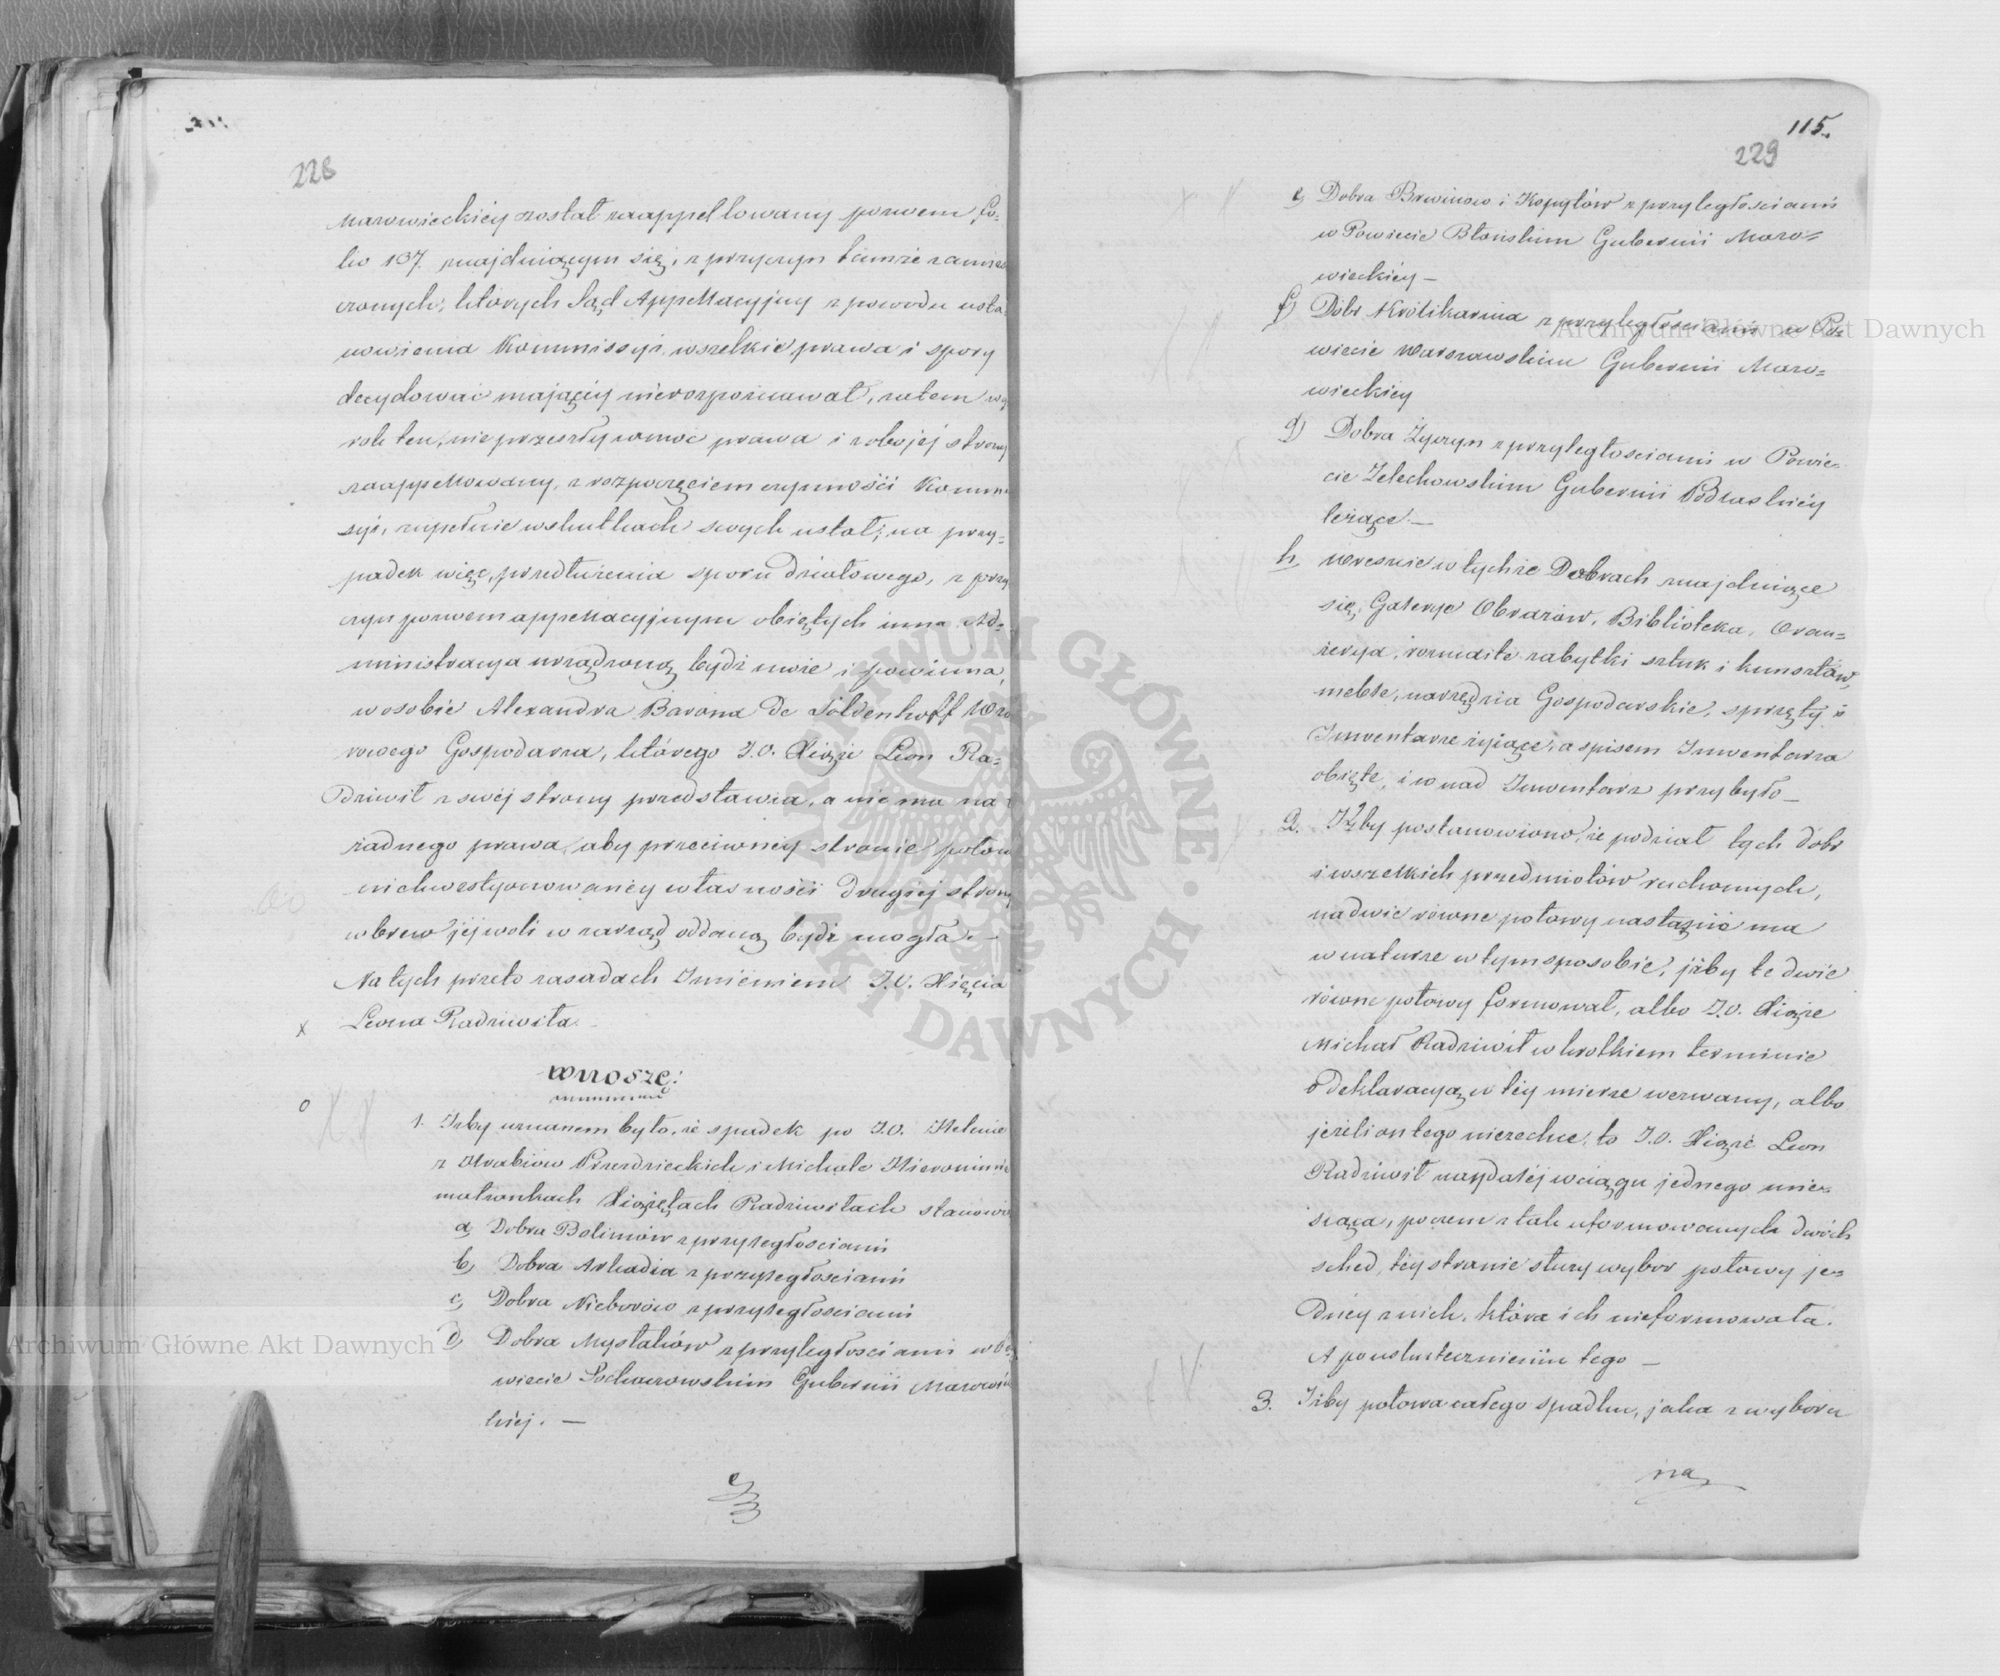 228
Mazowieckiéy został zaappellowany pozwem fo-
lio 137. znajdującym się, z przyczyn tamże zamiesz
czonych, których Sąd Appellacyjny z powodu usta-
nowienia Kommissyi, wszelkie prawa i spory
decydować mającéy nierozpoznawał, zatem wy
rok ten, nie przeszły wmoc prawa i z obojéj strony
zaappellowany, z rozpoczęciem czynności Kommis
syi, zupełnie wskutkach swych ustał; na przy-
padek więc, przedłużenia sporu działowego, z przy
czyn pozwem appellacyjnym objętych inna Ad-
ministracya urządzoną bydź może i powinna,
wosobie Alexandra Barona de Soldenhoff Wzo
rowego Gospodarza, którego J.O. Xiąże Leon Ra-
dziwiłł z swéj strony przedstawia, a nie ma na
żadnego prawa, aby przeciwnéy stronie połow
niekwestyonowanéy własności drugiéj strony
wbrew jéj woli w zarząd oddaną bydź mogła. —
Na tych przeto zasadach Imieniem J.O. Xięcia
x Leona Radziwiła. —
wnoszę:
o
1. Iżby uznanem było, że spadek po J.O. Helenie
z Hrabiów Przezdzieckich i Michale Hieronimie
małżonkach Xiążętach Radziwiłach stanowią
a, Dobra Bolimów z przyległościami
b, Dobra Arkadia z przyległościami
c, Dobra Nieborów z przyległościami
d, Dobra Mysłaków z przyległościami w Po
wiecie Sochaczowskim Gubernii Mazowie
kiéj. —
115.
229
e, Dobra Brwinow i Kopytów z przyległościami
w Powiecie Błońskim Gubernii Mazo=
wieckiéy —
f) Dobr Królikarnia z przyległościami w Po=
wiecie Warszawskim Gubernii Mazo=
wieckiey
g) Dobra Życzyn z przyległosciami w Powie-
cie Żelechowskim Gubernii Podlaskiéy
leżące. —
h, Wreszcie w tychże Dobrach znajdujące
się, Galerye Obrazów, Biblioteka, Oran=
żerya, rozmaite zabytki sztuk i kunsztów,
meble, narzędzia Gospodarskie, sprzęty i
Inwentarze żyjące, a spisem Inwentarza
objęte, i co nad Inwentarz przybyło —
2. Iżby postanowiono, że podział tych dobr
i wszelkich przedmiotów ruchomych,
na dwie równe połowy nastąpić ma
w naturze w tym sposobie, iżby te dwie
równe połowy formował, albo J.O. Xiąże
Michał Radziwił w krotkiem terminie
o deklaracyą w téy mierze wezwany, albo
jeżeli on tego niezechce, to J.O. Xiąże Leon
Radziwił naydaléj wciągu jednego mie=
siąca, poczem z tak uformowanych dwóch
sched, téy stronie służy wybor połowy je=
dnéy z nich, która ich nieformowała.
A po uskutecznieniu tego —
3. Iżby połowa całego spadku, jaka z wyboru
na
Archiwum Główne Akt Dawnych
Archiwum Główne Akt Dawnych
ARCHIWUM GŁÓWNE AKT DAWNYCH